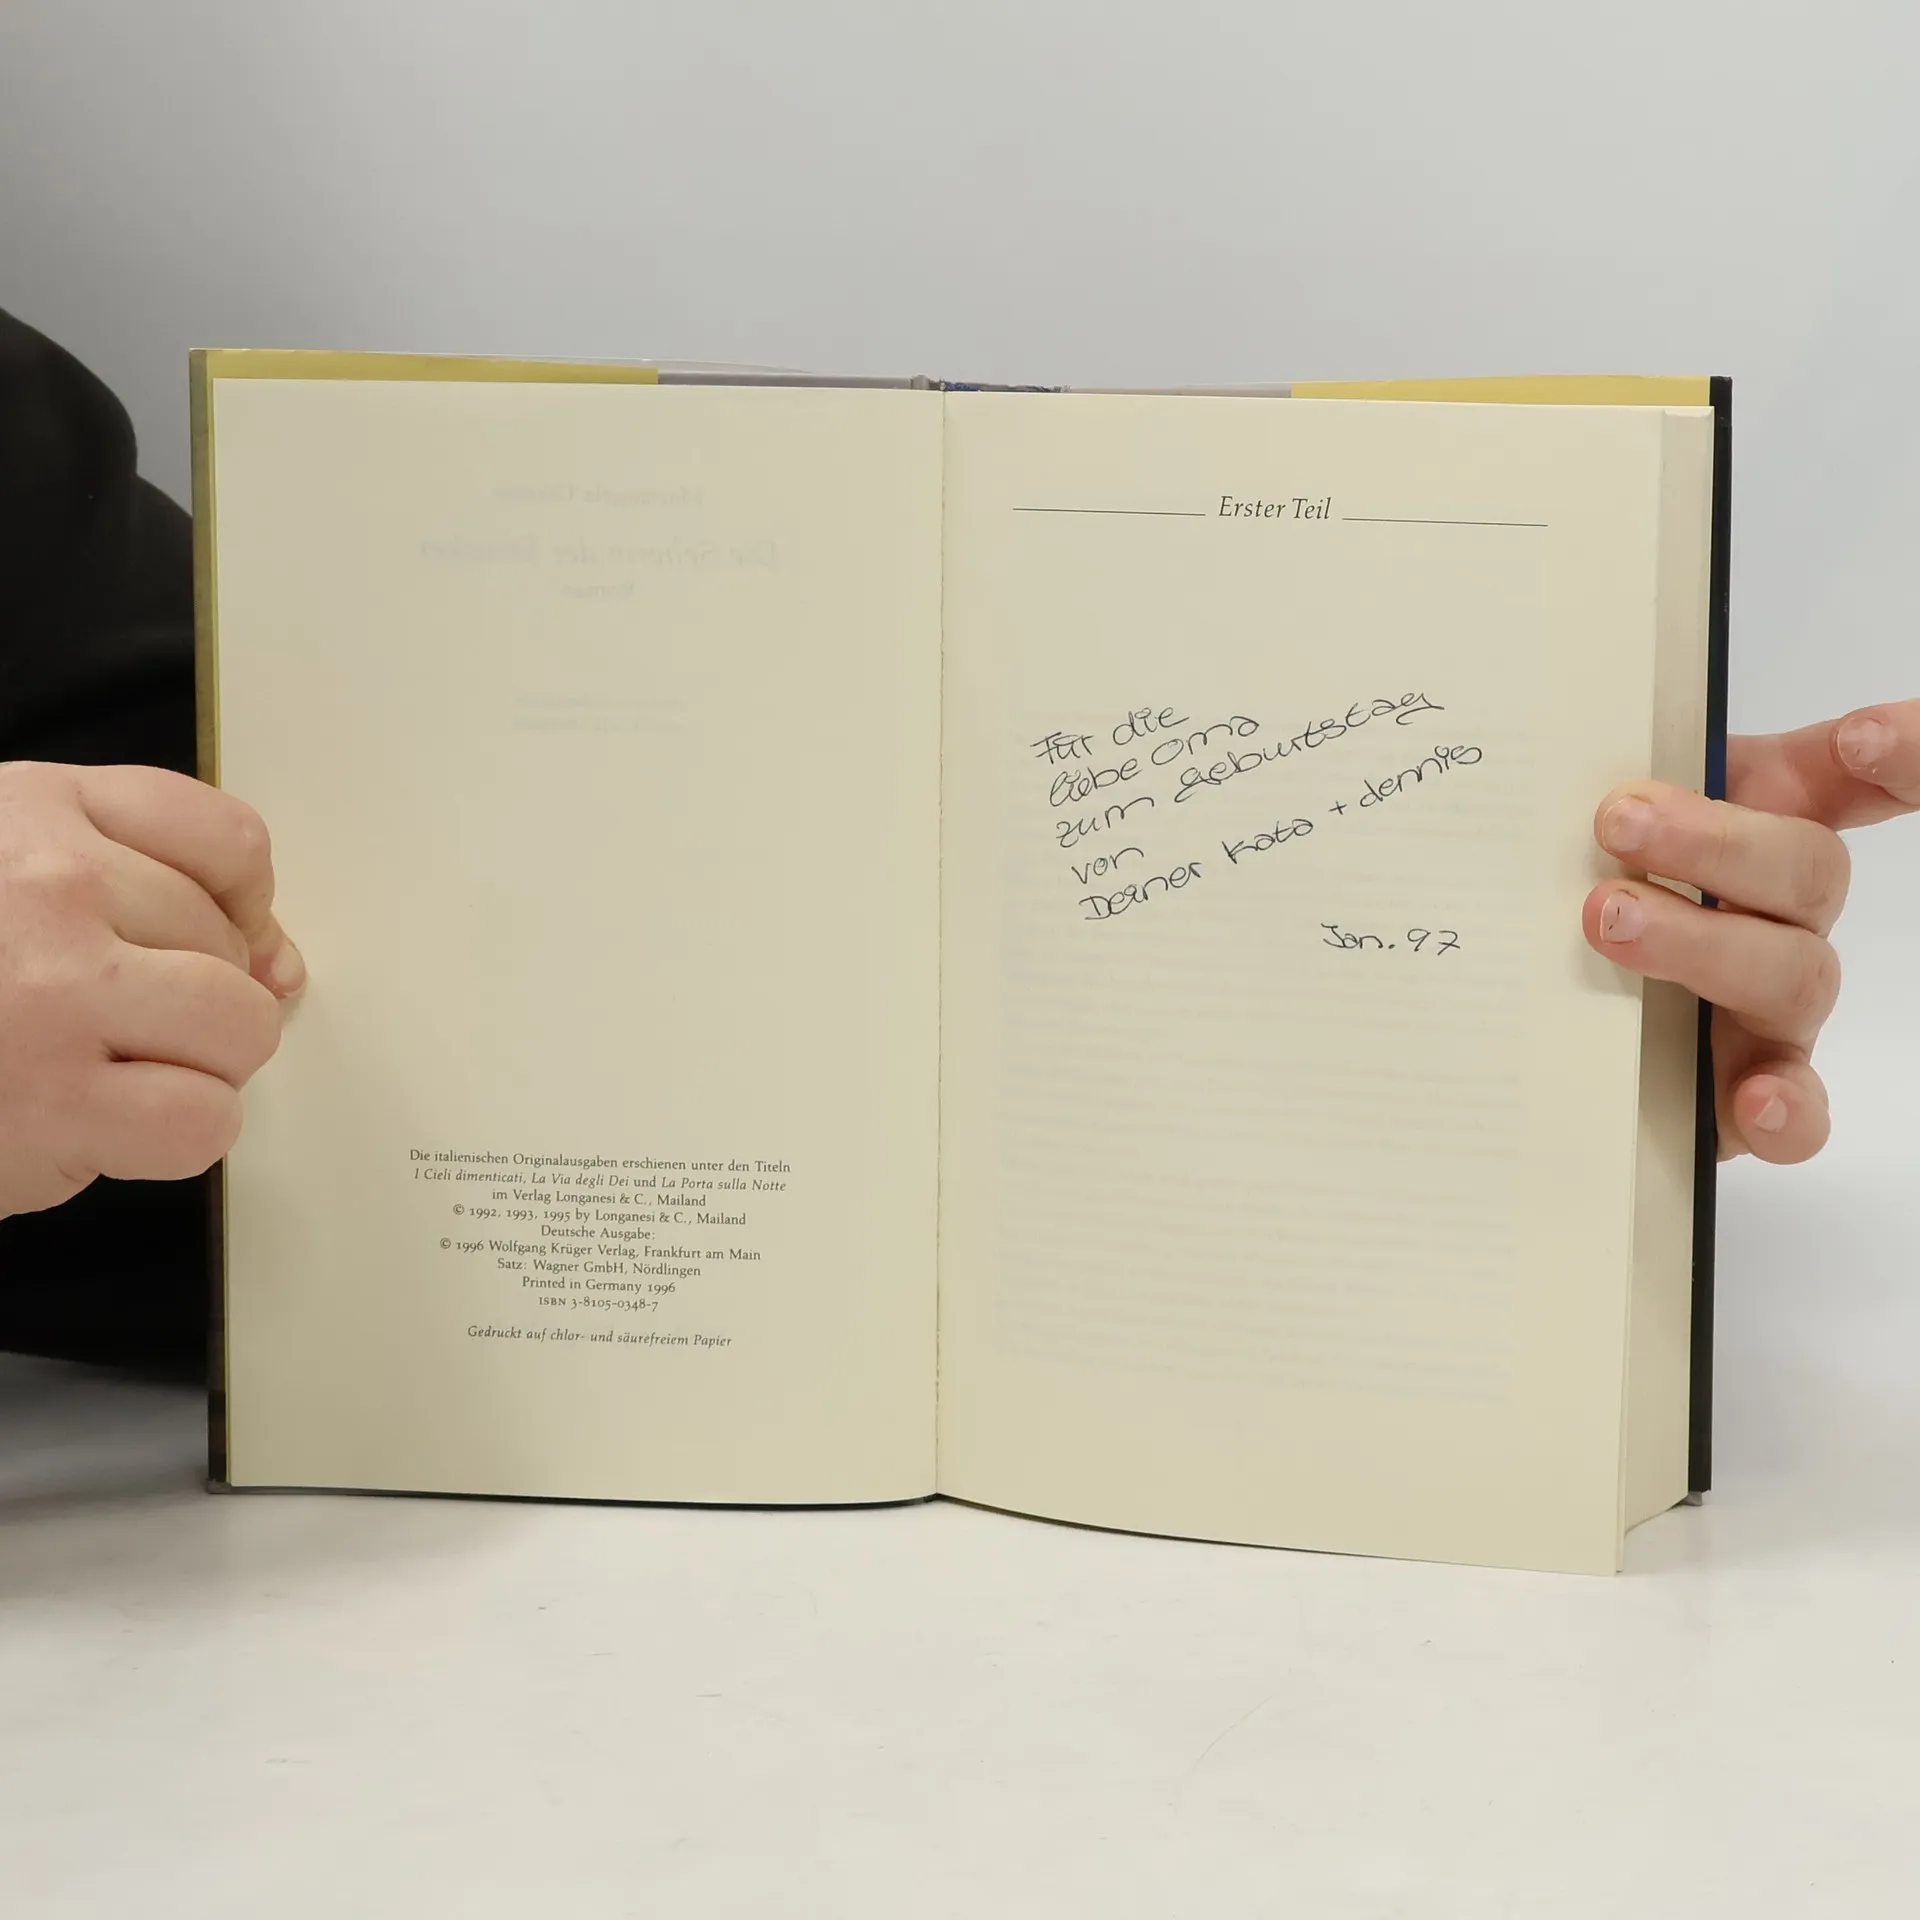 Die italienischen Originalausgaben erschienen unter den Titeln
I Cieli dimenticati, La Via degli Dei und La Porta sulla Notte
im Verlag Longanesi & C., Mailand
© 1992, 1993, 1995 by Longanesi & C., Mailand
Deutsche Ausgabe:
© 1996 Wolfgang Krüger Verlag, Frankfurt am Main
Satz: Wagner GmbH, Nördlingen
Printed in Germany 1996
ISBN 3-8105-0348-7
Gedruckt auf chlor- und säurefreiem Papier
Erster Teil
Für die
liebe Oma
zum Geburtstag
von
Deiner Kata + dennis
Jan. 97